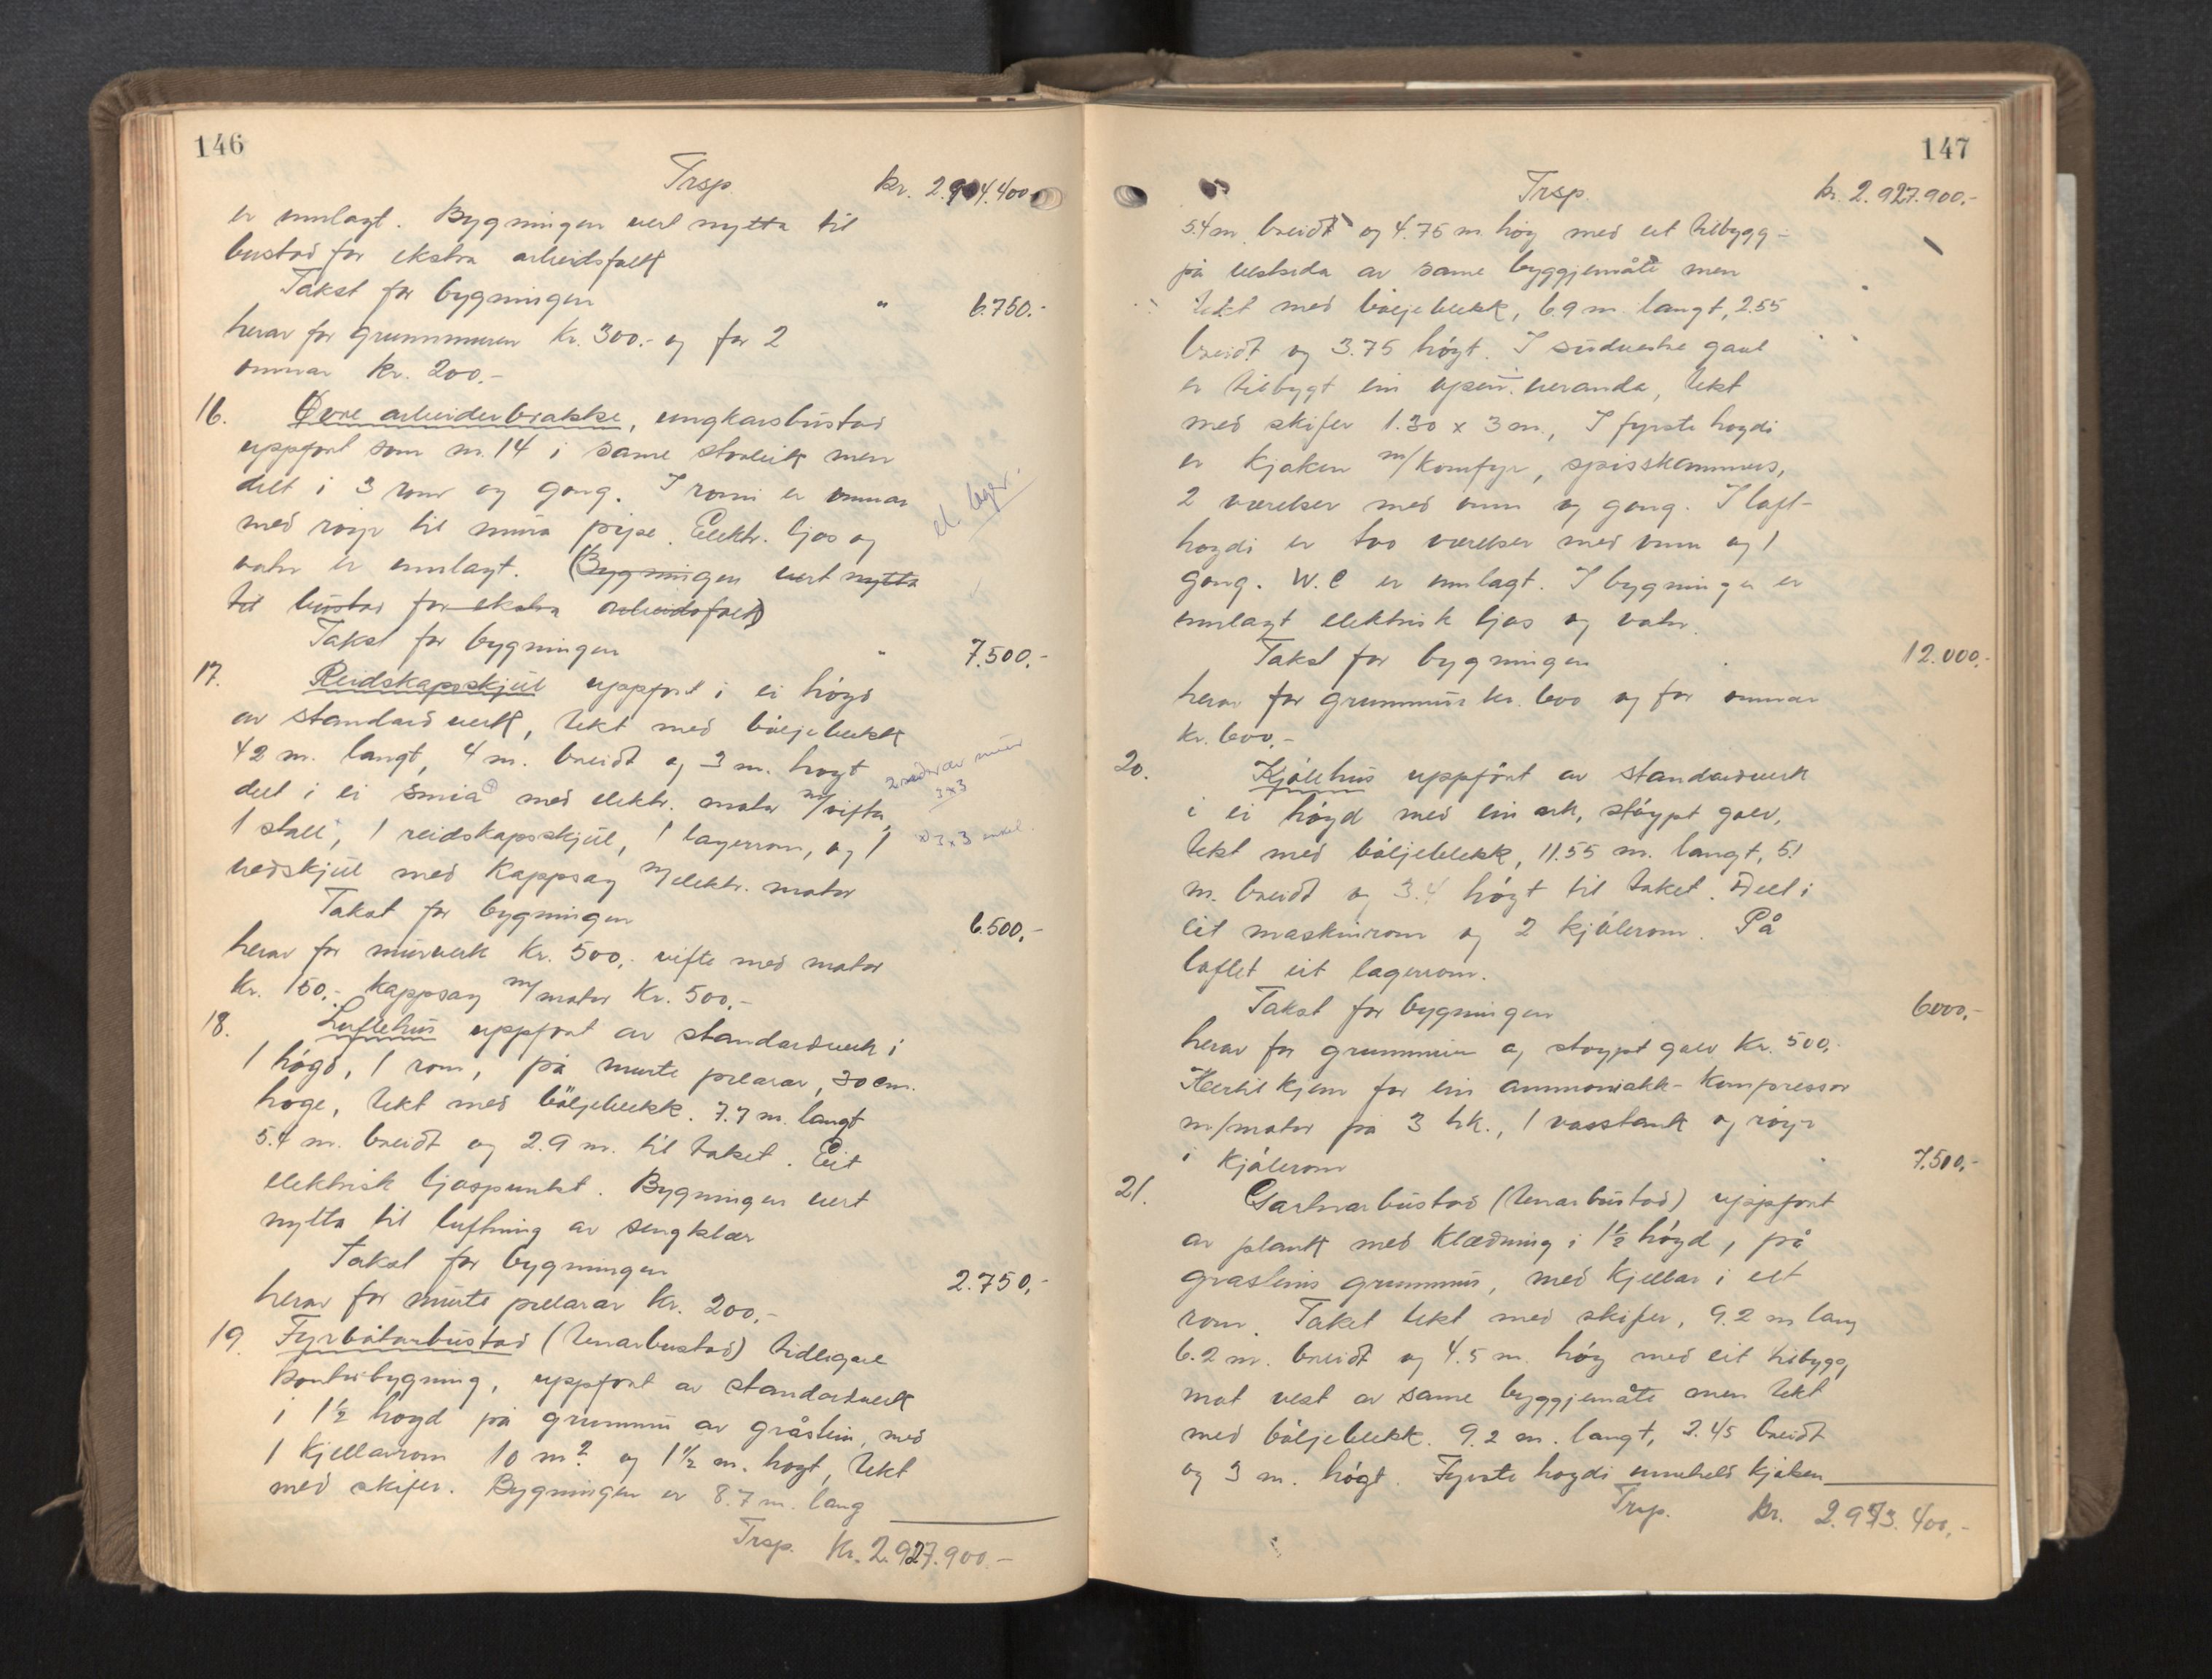 146
Trsp. kr. 2.904.400.-
er innlagt. Bygningen vert nytta til
bustad for ekstra arbeidsfolk
Takst for bygningen " 6.750.-
herav for grunnmuren kr. 300.- og for 2
omnar kr. 200.-
16. Øvre arbeiderbrakke, ungkarsbustad
uppført som nr. 14 i same storleik men
delt i 3 rom og gong. I romi er omnar
med røyr til mura pipe. Elektr. ljos og
el. lager.
vatn er innlagt. (Bygningen vert nytta
til bustad for ekstra arbeidsfolk)
Takst for bygningen " 7.500.-
17. Reidskapsskjul uppført i ei høgd
av standard verk, tekt med bølgeblekk
42 m. langt, 4 m. breidt og 3 m. høgt
delt i ei smia med elektr. motor m/vifta,
3x3
1 stall, 1 reidskapsskjul, 1 lagerrom, og 1
3x3
vedskjul med kappsag m/elektr. motor
Takst for bygningen 6.500.-
herav for murverk kr. 500,- vifte med motor
kr. 150,- kappsag m/motor kr. 500,-
18. Luftehus uppført av standardverk i
1 høgd, 1 rom, på murte pilarar, 30 cm.
høge, tekt med bölgeblekk. 7.7 m. langt
5.4 m. breidt og 2.9 m. til taket. Eit
elektrisk ljospunkt. Bygningen vert
nytta til luftning av sengklær
Takst for bygningen 2.750,-
herav for murte pilarar kr. 200,-
19. Fyrbøtarbustad (tenarbustad) tidlegare
kontorbygning, uppført av standardverk
i 1½ høgd på grunnmur av gråstein, med
1 kjellarrom 10 m² og 1½ m. høgt, tekt
med skifer. Bygningen er 8.7 m. lang
Trsp. Kr. 2.927.900.-
147
Trsp. kr. 2.927.900.-
5.4 m. breidt og 4.75 m. høg med eit tilbygg-
på vestsida av same byggjemåte men
tekt med bølgeblekk, 6.9 m. langt, 2.55
breidt og 3.75 høgt. I südvestre gavl
er tilbygt ein open veranda, tekt
med skifer 1.30 x 3 m., I fyrste høgdi
er kjøken m/komfyr, spisskammers,
2 værelser med omn og gong. I loft-
høgdi er tvo værelser med omn og 1
gong. W.C er innlagt. I bygningen er
innlagt elektrisk ljos og vatn.
Takst for bygningen 12.000,-
herav for grunnmur kr. 600 og for omnar
kr. 600,-
20. Kjølehus uppført av standardverk
i ei høgd med ein ark, støypt golv,
tekt med bølgeblekk, 11.55 m. langt, 5.1
m. breidt og 3.4 høgt til taket. Delt i
eit maskinrom og 2 kjølerom. På
loftet eit lagerrom.
Takst for bygningen 6000,-
herav for grunnmur og støypt golv kr. 500,-
Hertil kjem for ein ammoniakk-kompressor
m/motor på 3 hk., 1 vasstank og røyr
i kjølerom 7.500,-
21. Gartnarbustad (tenarbustad) uppført
av plank med klædning i 1½ høgd, på
grasteins grunnmur, med kjellar i eit
rom. Taket tekt med skifer, 9.2 m lang
6.2 m. breidt og 4.5 m. høg med eit tilbygg,
mot vest av same byggjemåte men tekt
med bølgeblekk. 9.2 m. langt, 2.45 breidt
og 3 m. høgt. Fyrste høgdi inneheld kjøken
Trsp. kr. 2.953.400,-